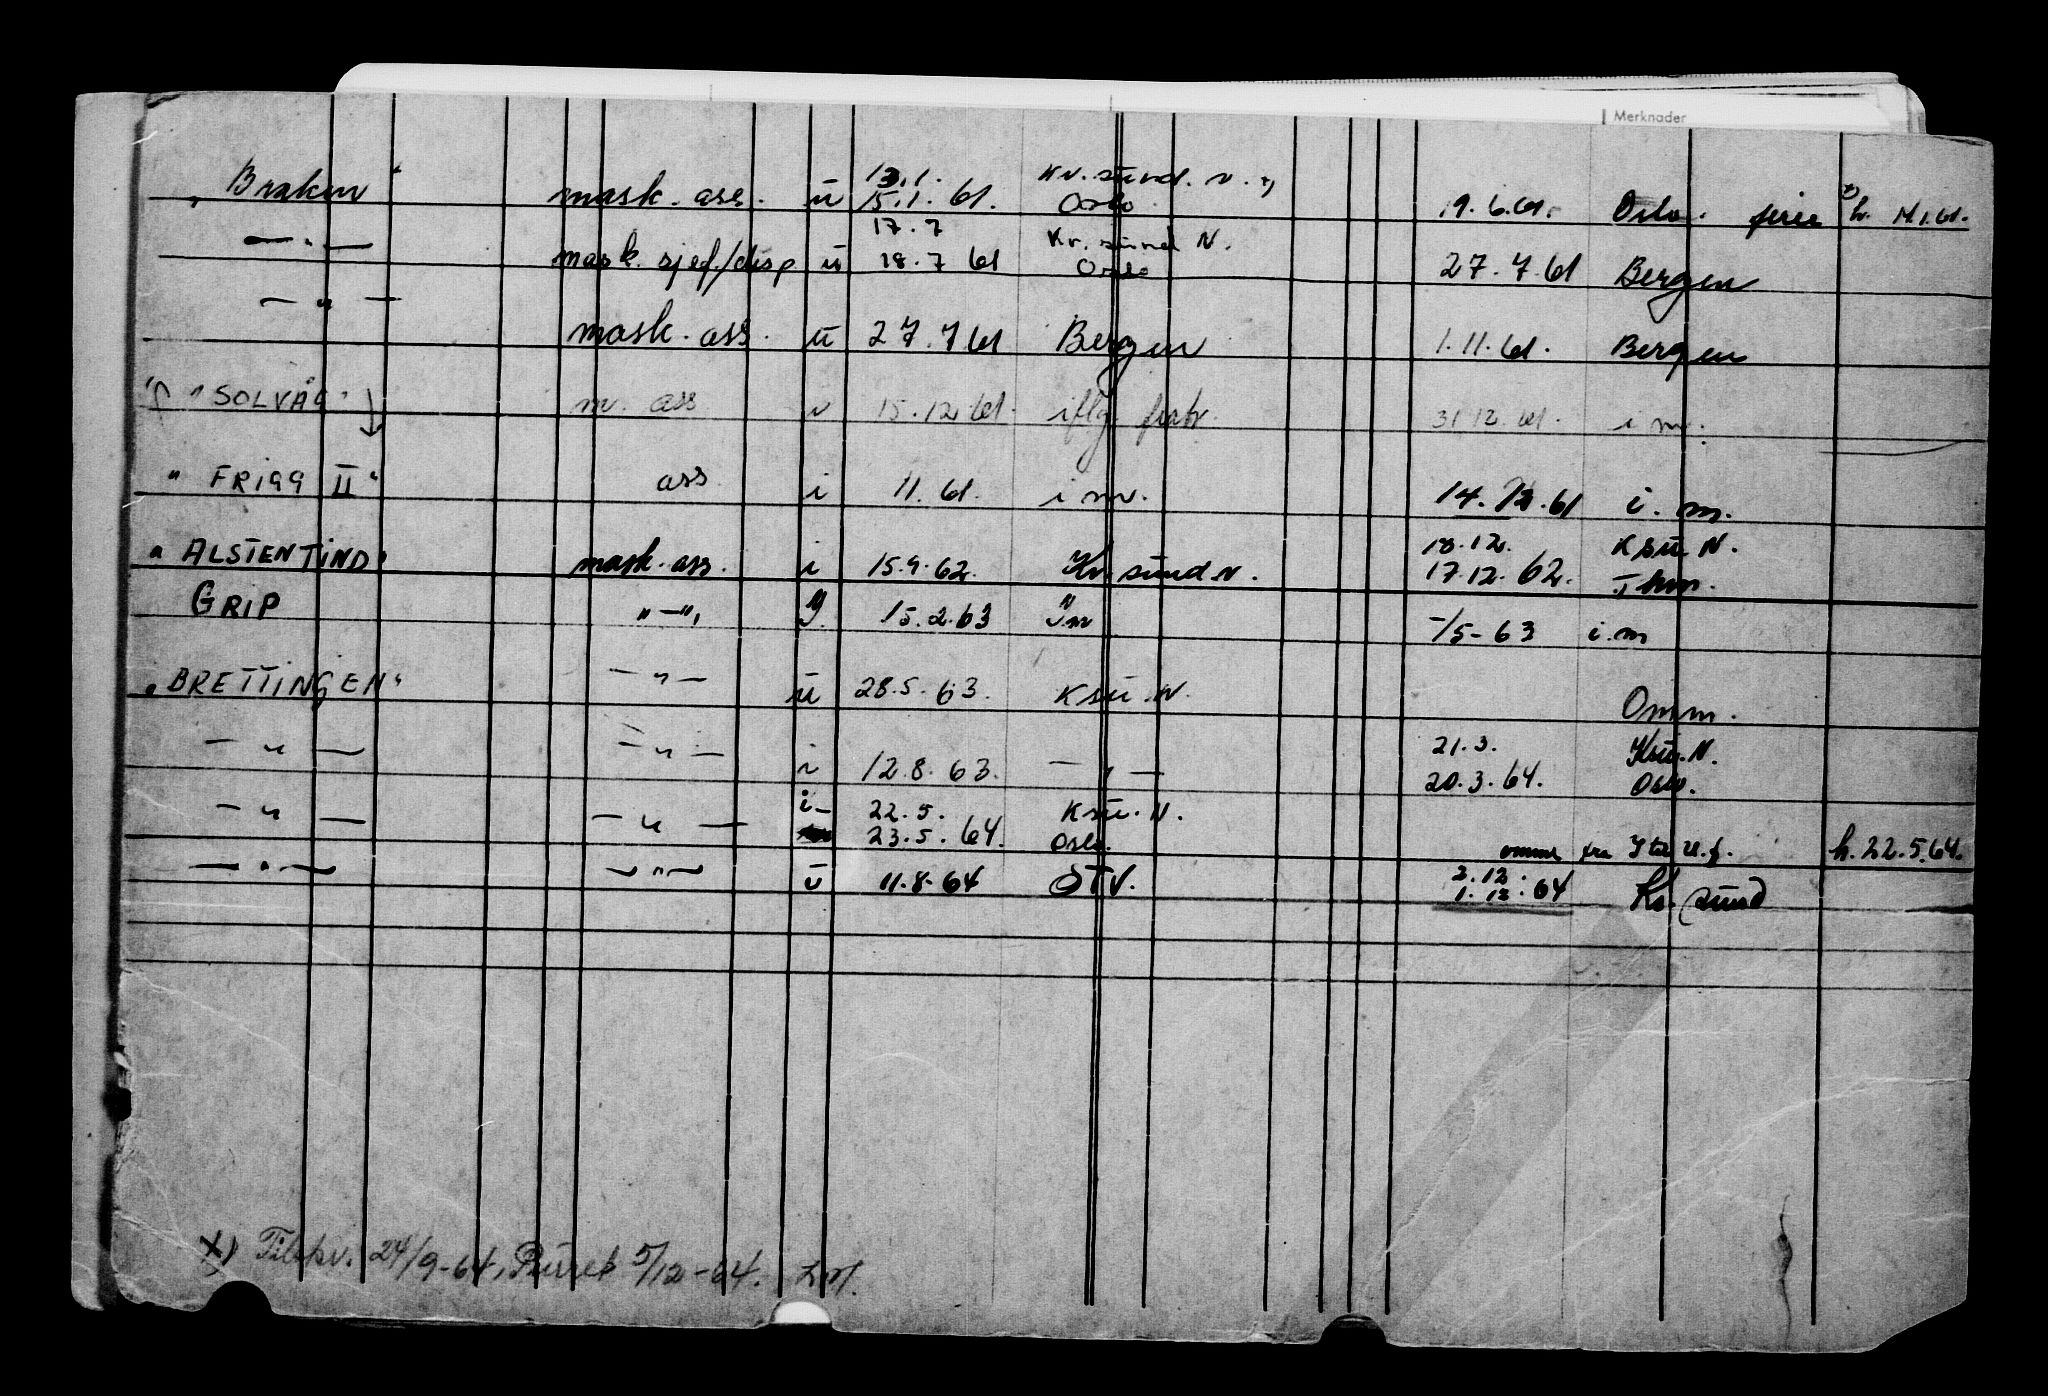 Merknader
„Braken“ mask. ass. ü 13.1. Kv. sünd. N. x)
15.1.61. Oslo. 19.6.61. Oslo. ferie x) h. 14.1.61.
— „ — mask. sjef./disp ü 17.7 Kr. sünd N.
18.7 61 Oslo 27.7.61 Bergen
— „ —
mask. ass. ü 27.7 61 Bergen 1.11.61. Bergen
"SOLVÅG" m. ass i 15.12 61. iflg. 31.12.61. i m.
"FRIGG II" ass i 11.61. i m. 14.12.61 i. m.
"ALSTENTIND" mask. ass. i 15.9.62. Kr. sünd N. 18.12. Ksü N.
17.12.62. Thm.
GRIP „—", 15.2.63 Im -/5-63 i.m
„BRETTINGEN“ — „ — ü 28.5.63. Ksü. N. Omm.
— „ — — „ — i 12.8.63. — „ — 21.3. Ksü. N.
20.3.64. Oslo.
— „ — — „ — i 22.5. Ksü. N.
23.5.64. Oslo. fra h. 22.5.64.
— „ — — „ — ü 11.8.64 STV. 2.12.
1.12.64 Kr. sünd
x) 24/9-64, 5/12-64.